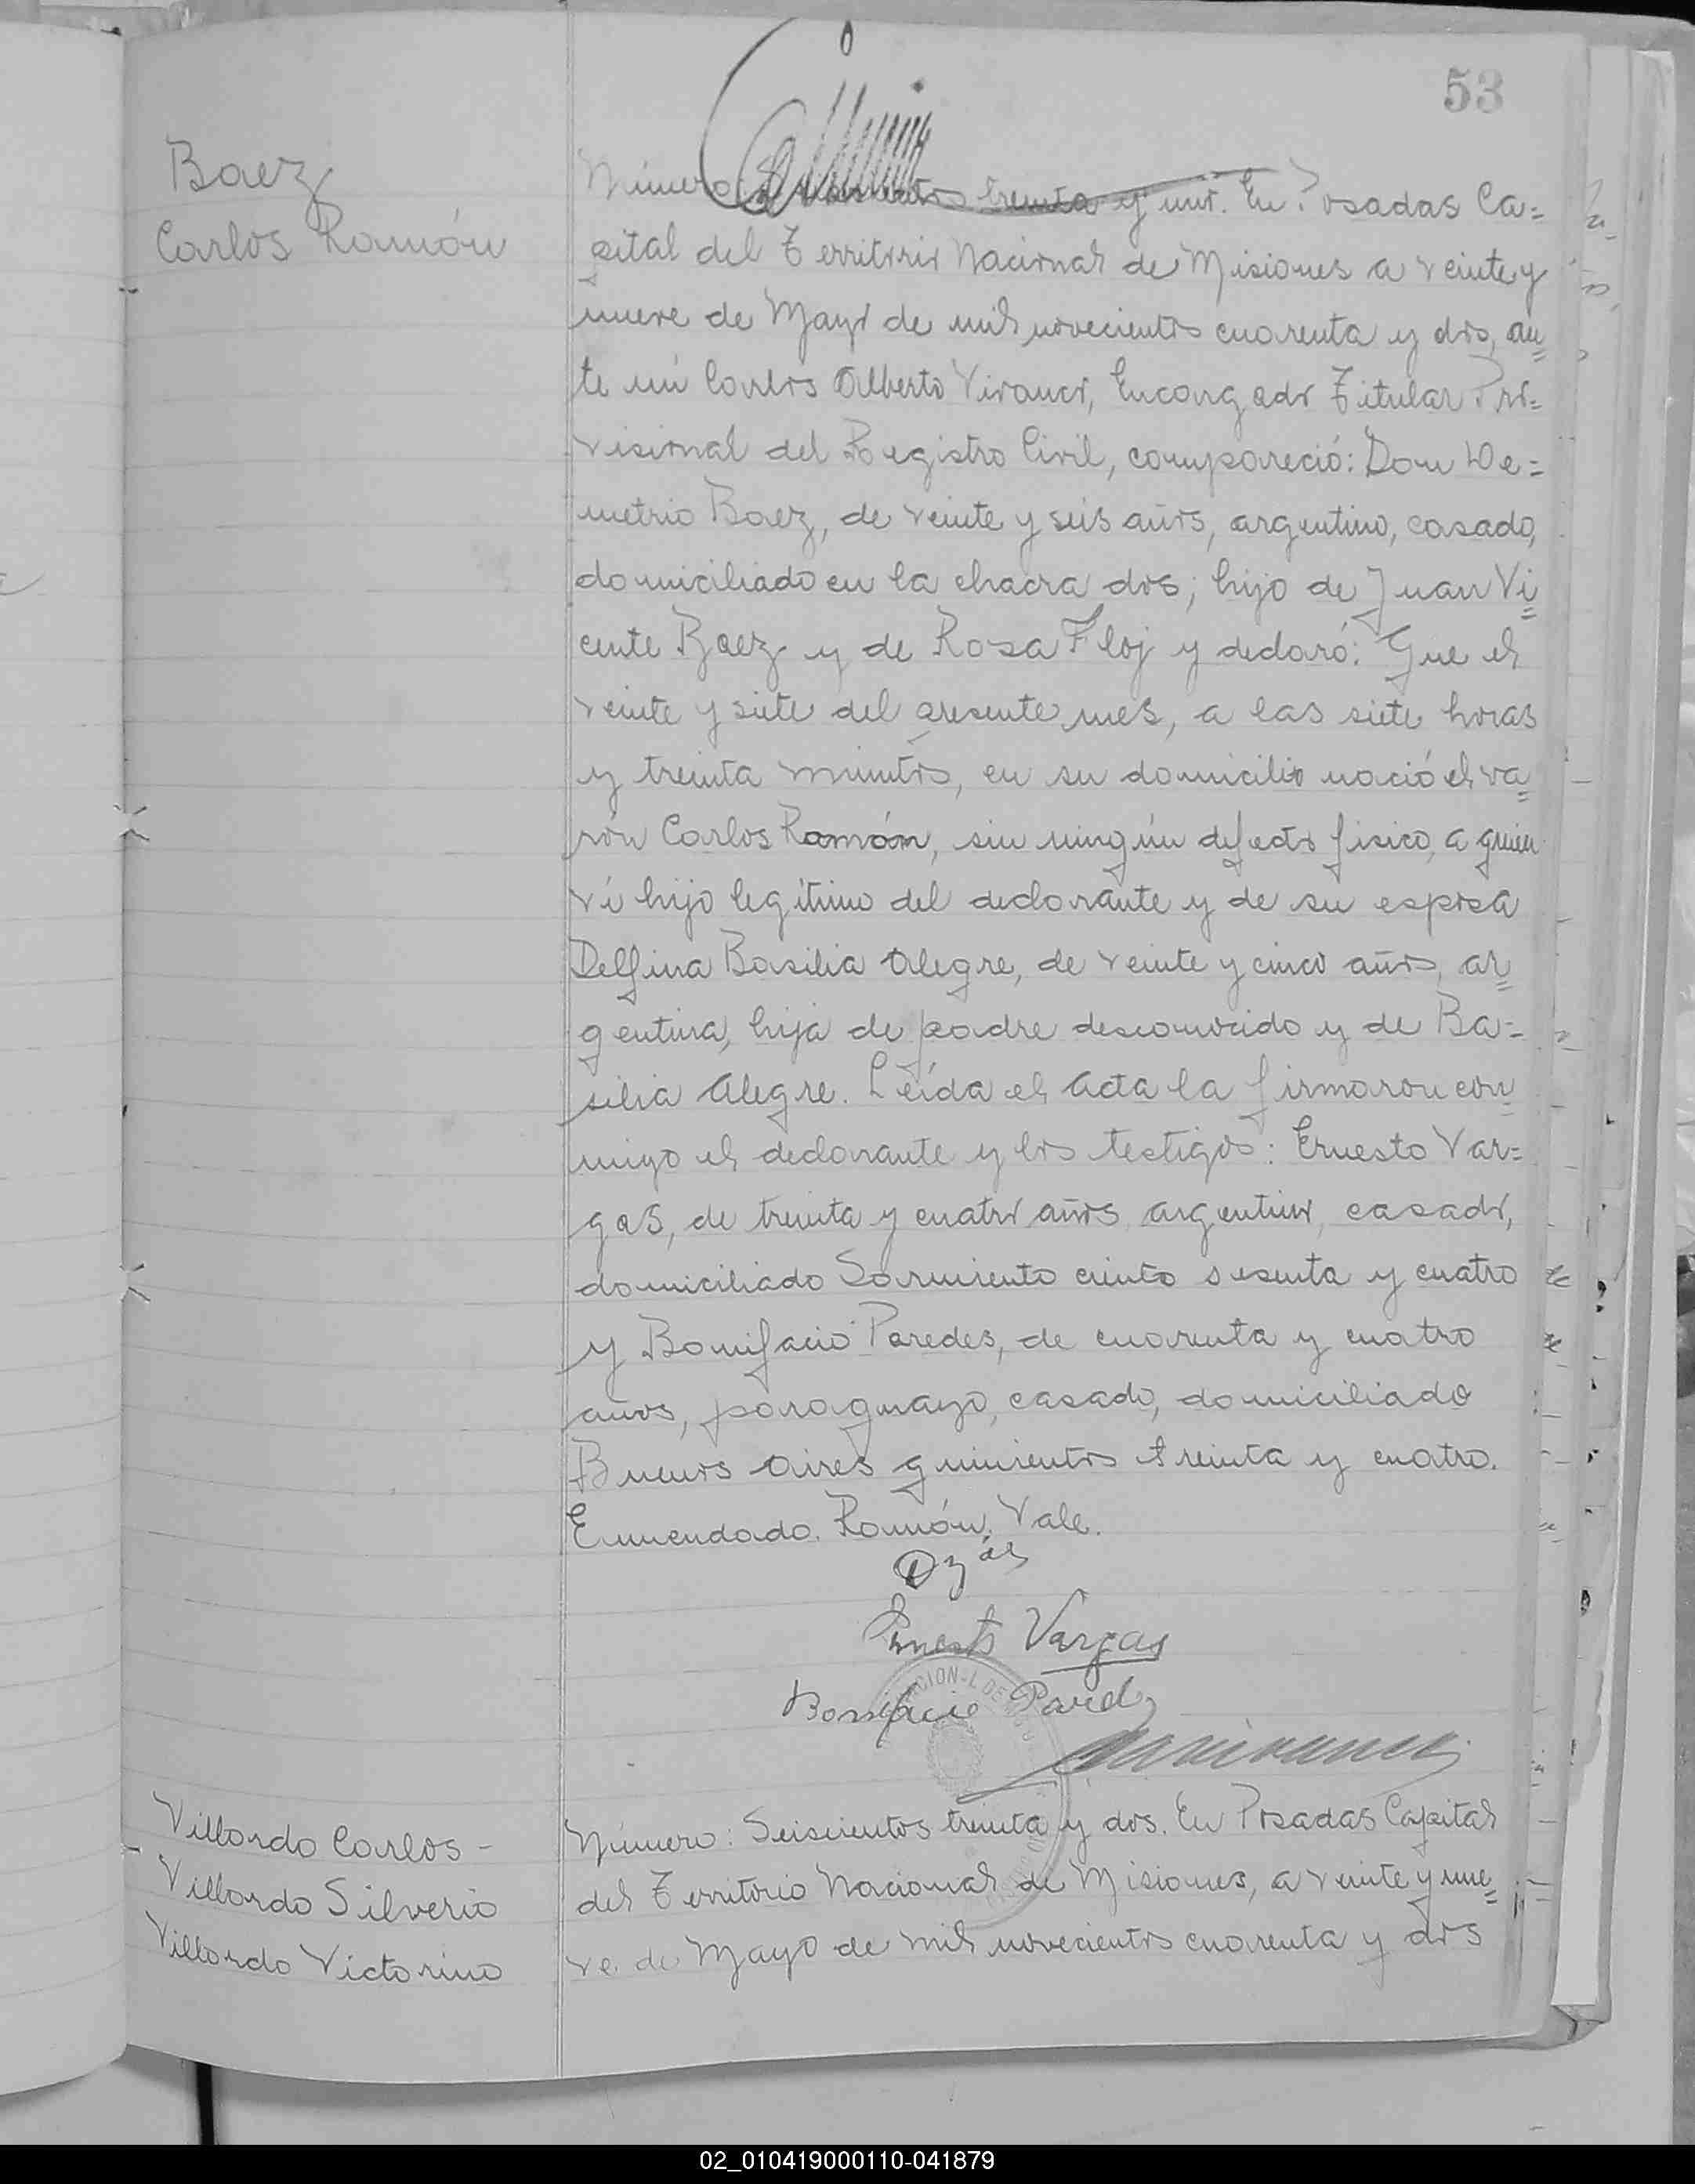 53
Baez
Carlos Ramón
Número: Seiscientos treinta y uno. En Posadas Ca=
pital del Territorio Nacional de Misiones a veinte y
nueve de Mayo de mil novecientos cuarenta y dos, an=
te mí Carlos Alberto Vivanco, Encargado Titular Pro=
visional del Registro Civil, compareció: Don De=
metrio Baez, de veinte y seis años, argentino, casado,
domiciliado en la chacra dos; hijo de Juan Vi=
cente Baez y de Rosa Floj y declaró: Que el
veinte y siete del presente mes, a las siete horas
y treinta minutos, en su domicilio nació el va=
rón Carlos Ramón, sin ningún defecto físico, a quien
ví hijo legítimo del declarante y de su esposa
Delfina Basilia Alegre, de veinte y cinco años, ar=
gentina, hija de padre desconocido y de Ba=
silia Alegre. Leída el acta la firmaron con=
migo el declarante y los testigos: Ernesto Var=
gas, de treinta y cuatro años, argentino, casado,
domiciliado Sarmiento ciento sesenta y cuatro
y Bonifacio Paredes, de cuarenta y cuatro
años, paraguayo, casado, domiciliado
Buenos Aires quinientos treinta y cuatro.
Enmendado. Ramón. Vale.
Ernesto Vargas
Bonifacio Pared
Villordo Carlos -
Villordo Silverio
Villordo Victorino
Número: Seiscientos treinta y dos. En Posadas Capital
del Territorio Nacional de Misiones, a veinte y nue=
ve de Mayo de mil novecientos cuarenta y dos
02_010419000110-041879